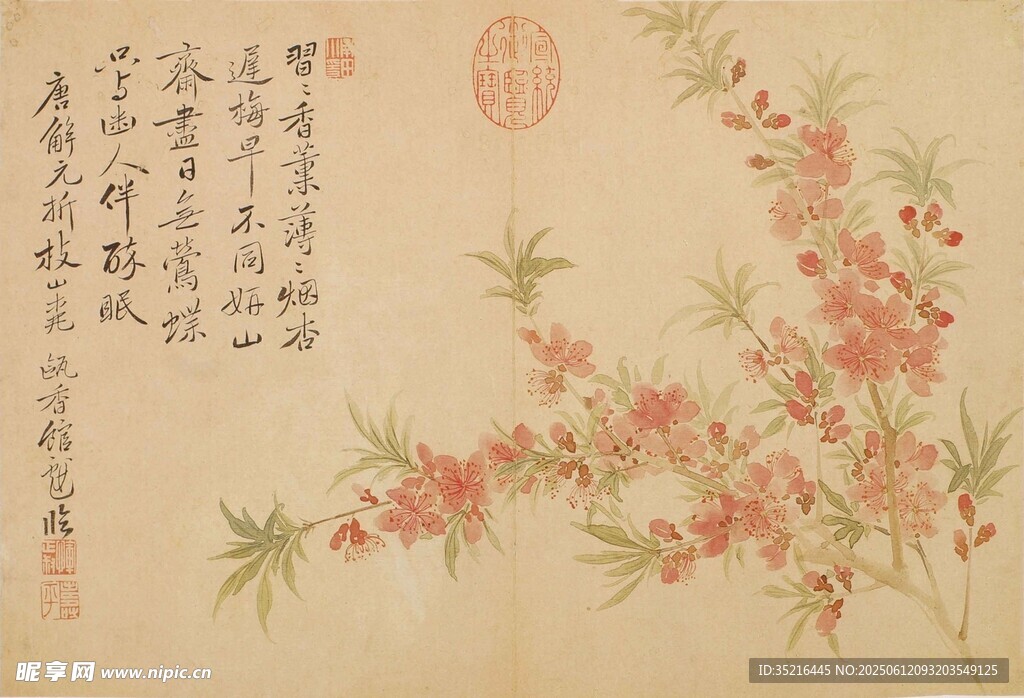 習〻香薰薄〻烟杏
遲梅早不同妍山
齋盡日無鶯蝶
只与幽人伴醉眠
唐解元折枝山桃 甌香館 臨
宣統御覽之寶
昵享网 www.nipic.cn
ID:35216445 NO:20250612093203549125